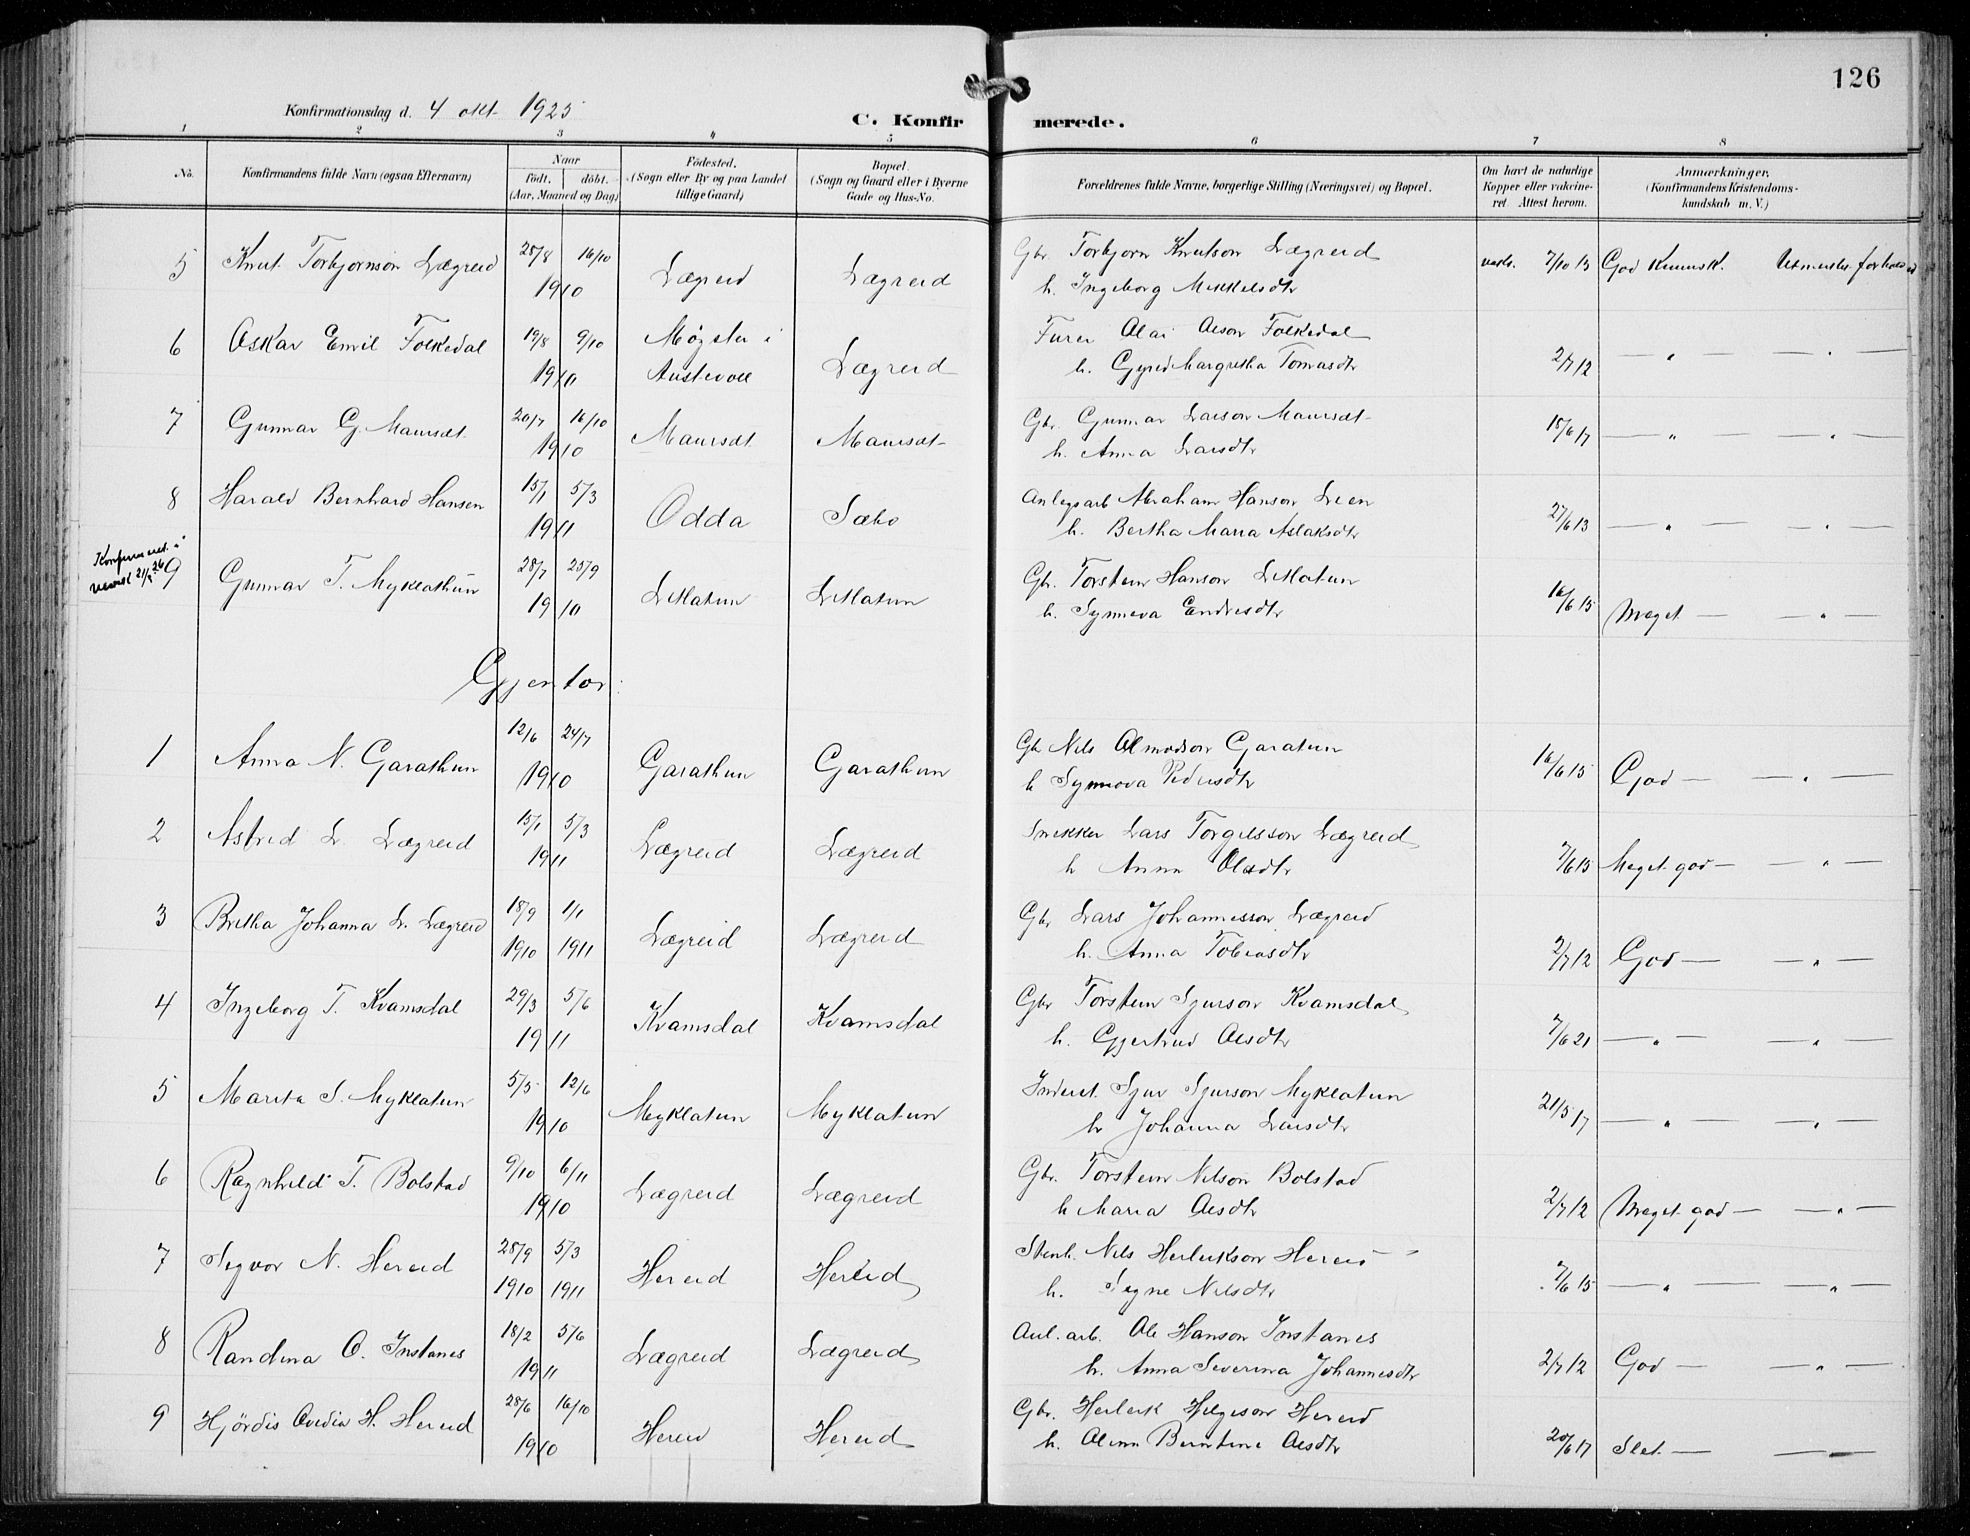 126
Konfirmationsdag d. 4 okt. 1925
C. Konfirmerede.
1 2 3 4 5 6 7 8
No.
Konfirmandens fulde Navn (ogsaa Efternavn)
Naar
födt. döbt.
(Aar, Maaned og Dag)
Födested.
(Sogn eller By og paa Landet
tillige Gaard)
Bopæl.
(Sogn og Gaard eller i Byerne
Gade og Hus-No.
Forældrenes fulde Navne, borgerlige Stilling (Næringsvei) og Bopæl.
Om havt de naturlige
Kopper eller vakcine-
ret Attest herom.
Anmærkninger.
(Konfirmandens Kristendoms-
kundskab m. V.)
5 Knut Torbjornson Lægreid 25/8 16/10 1910 Lægreid Lægreid Gbr. Torbjorn Knutson Lægreid
h. Ingeborg Mikkelsdtr vaks. 7/10 13 God Kunnsk.
6 Oskar Emil Folkedal 19/8 9/10 1910 Møgster i
Austevoll Lægreid Furer Olai Olson Folkedal
h. Gyrid Margretha Tomasdtr 2/7 12 — " — — " —
7 Gunnar G. Maursæt 20/7 16/10 1910 Maursæt Maursæt Gbr. Gunnar Larson Maursæt
h. Anna Larsdtr 15/6 17 — " — — " —
8 Harald Bernhard Hansen 15/1 5/3 1911 Odda Sæbo Anlegsarb Abraham Hanson Lien
h. Bertha Maria Aslaksdtr 27/6 13 — " — — " —
Konfirmeret i
9 Gunnar T. Myklathun 28/7 25/9 1910 Litlatun Litlatun Gb. Torstein Hanson Litlatun
h. Synneva Endresdtr 16/6 15 Meget — — " —
Gjentor:
1 Anna N. Garathun 12/6 24/7 1910 Garathun Garathun Gbr Nils Olmodson Garatun
h Synnova Pedersdtr 16/6 15 God — — " —
2 Astrid L. Lægreid 15/1 5/3 1911 Lægreid Lægreid Snekker Lars Torgilsson Lægreid
h Anna Olsdtr 7/6 15 Meget god — — " —
3 Britha Johanna L. Lægreid 18/9 1910 1/1 1911 Lægreid Lægreid Gbr Lars Johannesson Lægreid
h. Anna Tobiasdtr 2/7 12 God — — " —
4 Ingeborg T. Kvamsdal 29/3 5/6 1911 Kvamsdal Kvamsdal Gbr Torstein Sjurson Kvamsdal
h. Gjertrud Olsdtr 7/6 21 — " — — " —
5 Marita S. Myklatun 5/5 12/6 1910 Myklatun Myklatun Inderst. Sjur Sjurson Myklatun
h Johanna Larsdtr 21/5 17 — " — — " —
6 Ragnhild T. Bolstad 9/10 6/11 1910 Lægreid Lægreid Gbr. Torstein Nilson Bolstad
h Maria Olsdtr 2/7 12 Meget god — — " —
7 Sigvor N. Hereid 28/9 1910 5/3 1911 Hereid Hereid Stenh. Nils Herleikson Hereid
h. Signe Nilsdtr 7/6 15 — " — — " —
8 Randina O. Instanes 18/2 5/6 1911 Lægreid Lægreid Anl. arb. Ole Hanson Instanes
h. Anna Severina Johannesdtr 2/7 12 God — — " —
9 Hjördis Ovedia H. Hereid 28/6 16/10 1910 Hereid Hereid Gbr. Herleik Helgeson Hereid
h. Olina Berntine Olsdtr 20/6 17 Slet — — —